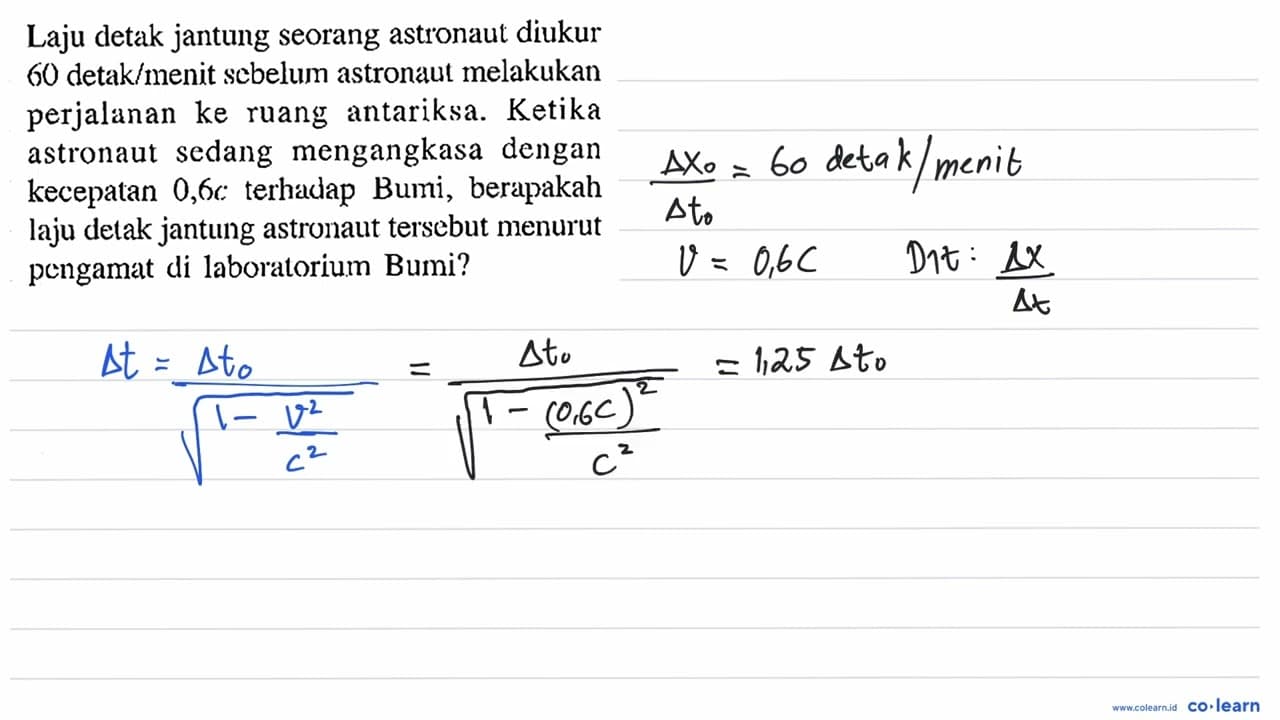 Laju detak jantung seorang astronaut diukur
60 detak/menit sebelum astronaut melakukan
perjalanan ke ruang antariksa. Ketika
astronaut sedang mengangkasa dengan
kecepatan 0,6c terhadap Bumi, berapakah
laju detak jantung astronaut tersebut menurut
pengamat di laboratorium Bumi?
ΔX₀/Δt₀ = 60 detak/menit
V = 0,6C Dit: ΔX/Δt
Δt = Δt₀/√(1 - V²/c²) = Δt₀/√(1 - (0,6C)²/C²) = 1,25 Δt₀
www.colearn.id co·learn